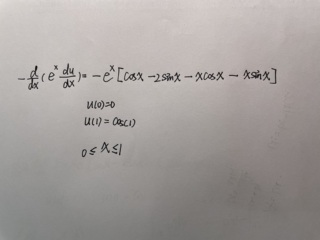 -d/dx(e^x du/dx) = -e^x[cosx -2sinx - xcosx - xsinx]
u(0)=0
u(1) = cos(1)
0 ≤ x ≤ 1